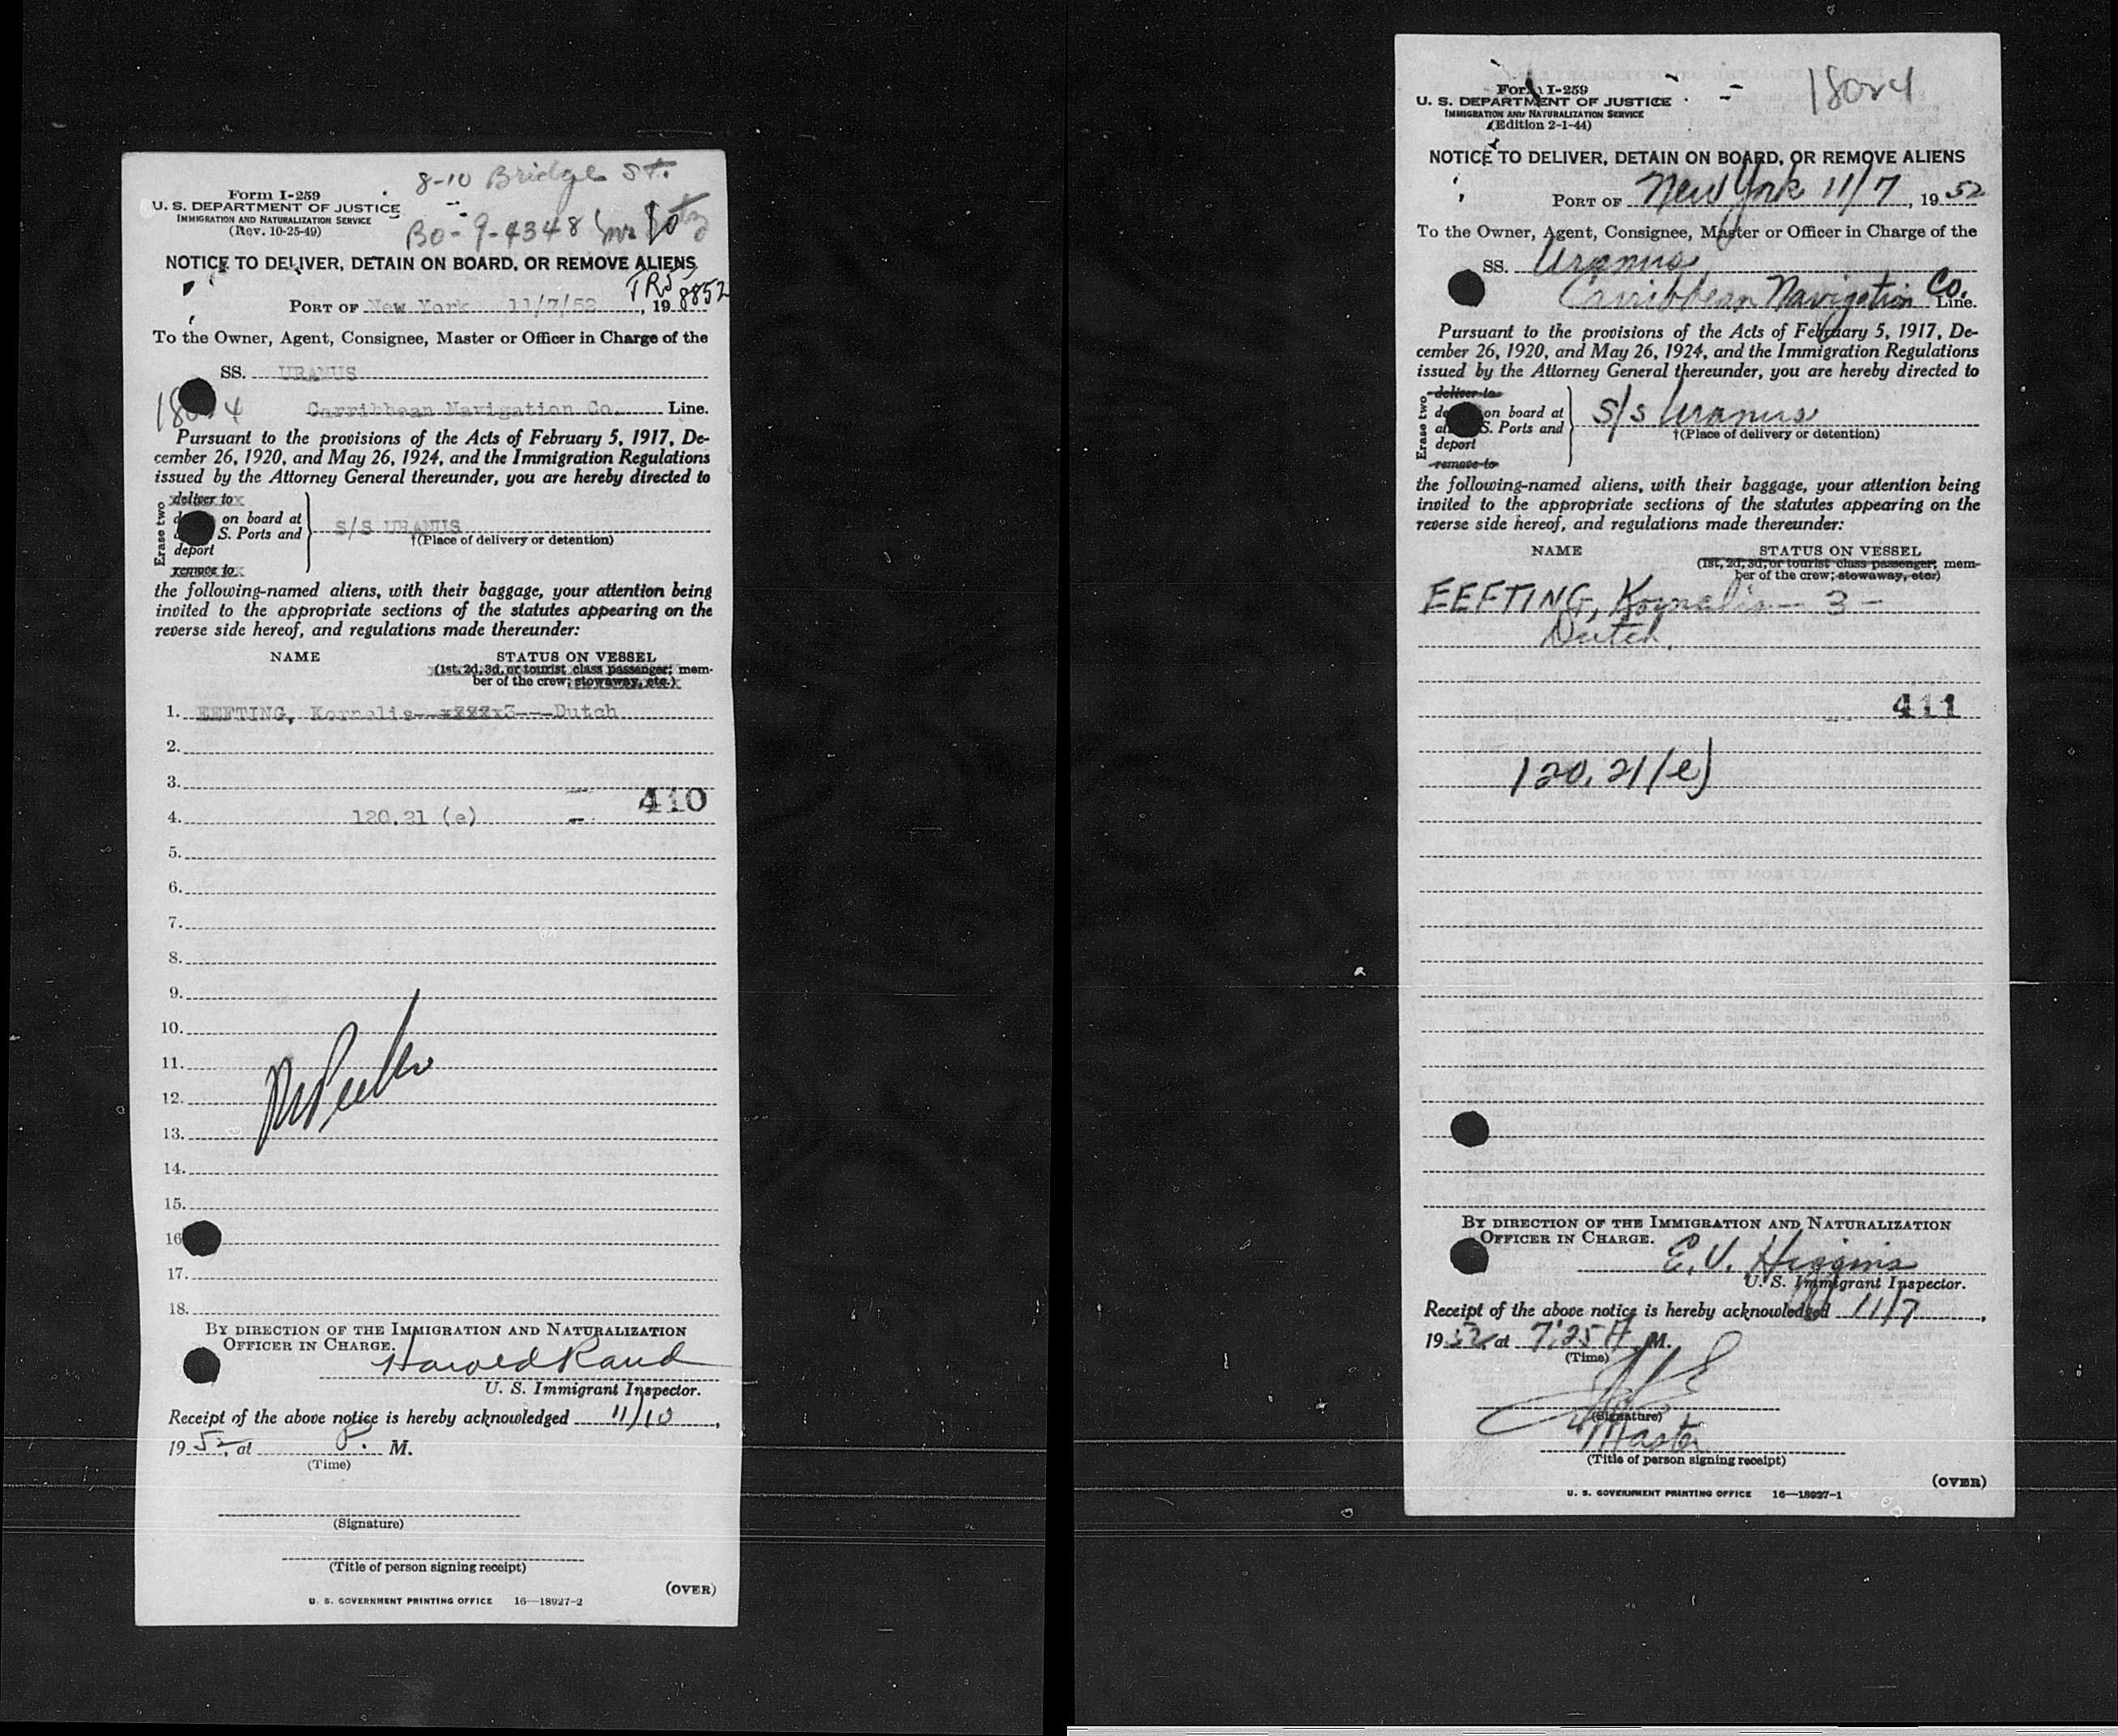 8-10 Bridge St.
Form I-259
U. S. DEPARTMENT OF JUSTICE
IMMIGRATION AND NATURALIZATION SERVICE
(Rev. 10-25-49)
BO-9-4348
NOTICE TO DELIVER, DETAIN ON BOARD, OR REMOVE ALIENS
TRS 8852
PORT OF New York 11/7/52, 19
To the Owner, Agent, Consignee, Master or Officer in Charge of the
SS. URANUS
Carribbean Navigation Co. Line.
Pursuant to the provisions of the Acts of February 5, 1917, De-
cember 26, 1920, and May 26, 1924, and the Immigration Regulations
issued by the Attorney General thereunder, you are hereby directed to
Erase two
deliver to
on board at
S. Ports and
deport
remove to
S/S URANUS
†(Place of delivery or detention)
the following-named aliens, with their baggage, your attention being
invited to the appropriate sections of the statutes appearing on the
reverse side hereof, and regulations made thereunder:
NAME STATUS ON VESSEL
(1st, 2d, 3d, or tourist class passenger; mem-
ber of the crew; stowaway, etc.)
1. EEFTING, Kornelis 3---Dutch
2.
3.
410
4. 120.21 (e)
5.
6.
7.
8.
9.
10.
11.
12.
13.
14.
15.
16
17.
18.
BY DIRECTION OF THE IMMIGRATION AND NATURALIZATION
OFFICER IN CHARGE.
Harold Rand
U. S. Immigrant Inspector.
Receipt of the above notice is hereby acknowledged 11/10,
1952, at P. M.
(Time)
(Signature)
(Title of person signing receipt)
(OVER)
U. S. GOVERNMENT PRINTING OFFICE 16—18927-2
18024
Form I-259
U. S. DEPARTMENT OF JUSTICE
IMMIGRATION AND NATURALIZATION SERVICE
(Edition 2-1-44)
NOTICE TO DELIVER, DETAIN ON BOARD, OR REMOVE ALIENS
PORT OF New York 11/7, 1952
To the Owner, Agent, Consignee, Master or Officer in Charge of the
SS. Uranus
Carribbean Navigation Co. Line.
Pursuant to the provisions of the Acts of February 5, 1917, De-
cember 26, 1920, and May 26, 1924, and the Immigration Regulations
issued by the Attorney General thereunder, you are hereby directed to
Erase two
deliver to
on board at
S. Ports and
deport
remove to
S/S Uranus
†(Place of delivery or detention)
the following-named aliens, with their baggage, your attention being
invited to the appropriate sections of the statutes appearing on the
reverse side hereof, and regulations made thereunder:
NAME STATUS ON VESSEL
(1st, 2d, 3d, or tourist class passenger; mem-
ber of the crew; stowaway, etc.)
EEFTING, Kornelis -- 3 -
Dutch.
411
120.21(e)
BY DIRECTION OF THE IMMIGRATION AND NATURALIZATION
OFFICER IN CHARGE.
E. V. Higgins
U. S. Immigrant Inspector.
Receipt of the above notice is hereby acknowledged 11/7,
1952, at 7:25 A. M.
(Time)
(Signature)
Master
(Title of person signing receipt)
(OVER)
U. S. GOVERNMENT PRINTING OFFICE 16—18927-1